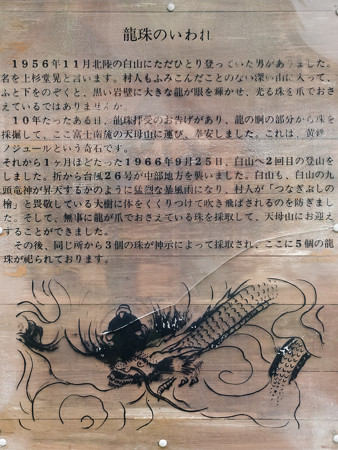 龍珠のいわれ
1956年11月北陸の白山にただひとり登っていた男がありました。
名を上杉堂晃と言います。村人もふみこんだことのない深い山に入って、
ふと下をのぞくと、黒い岩壁に大きな龍が眼を輝かせ、光る珠を爪でおさ
えているではありませんか。
10年たったある日、龍珠拝受のお告げがあり、龍の胴の部分から珠を
採掘して、ここ富士南麓の天母山に運び、奉安しました。これは、黄鉄
ノジュールという奇石です。
それから1ヶ月ほどたった1966年9月25日、白山へ2回目の登山を
しました。折から台風26号が中部地方を襲いました。白山も、白山の九
頭竜神が昇天するかのように猛烈な暴風雨になり、村人が「つなぎぶしの
檜」と畏敬している大樹に体をくくりつけて吹き飛ばされるのを防ぎまし
た。そして、無事に龍が爪でおさえている珠を採取して、天母山にお迎え
することができました。
その後、同じ所から3個の珠が神示によって採取され、ここに5個の龍
珠が祀られております。